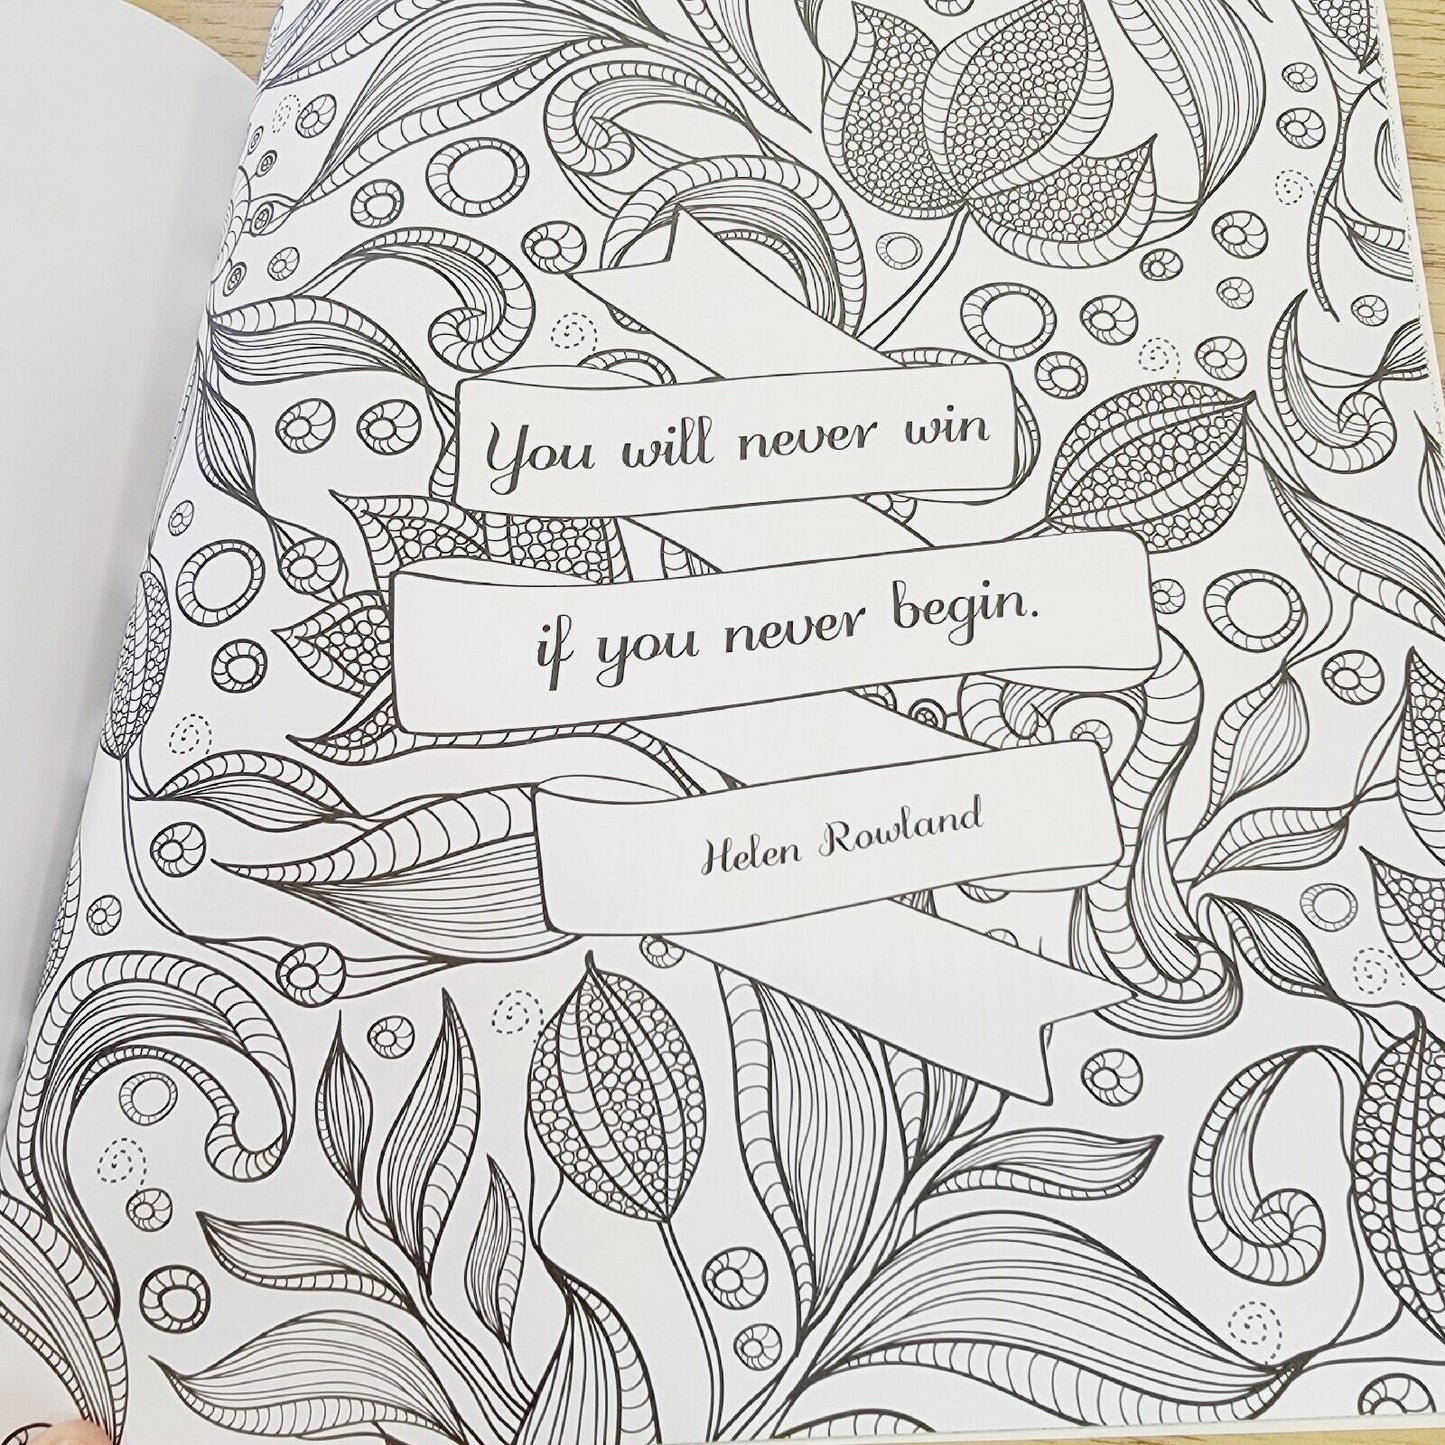 You will never win
if you never begin.
Helen Rowland